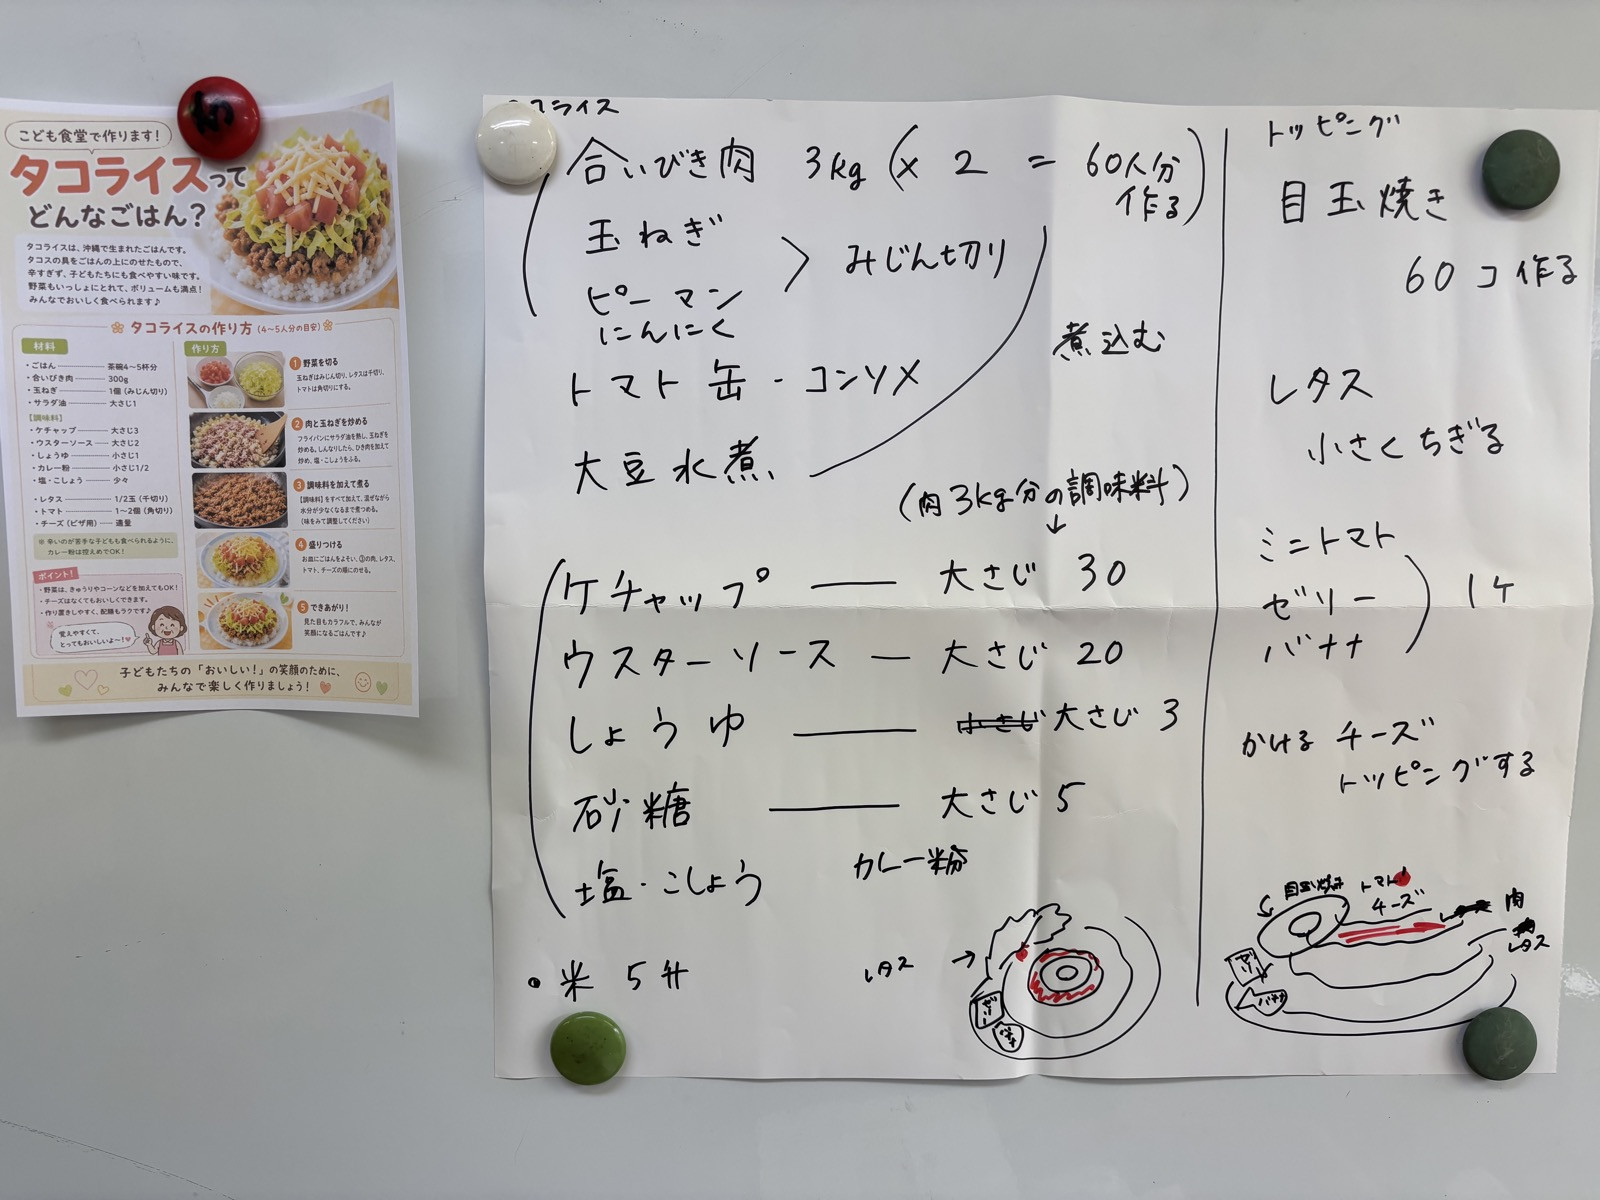 こども食堂で作ります!
タコライスって
どんなごはん?
タコライスは、沖縄で生まれたごはんです。
タコスの具をごはんの上にのせたもので、
辛すぎず、子どもたちにも食べやすい味です。
野菜もいっしょにとれて、ボリュームも満点!
みんなでおいしく食べられます♪
タコライスの作り方(4〜5人分の目安)
材料
・ごはん 茶碗4〜5杯分
・合いびき肉 300g
・玉ねぎ 1個(みじん切り)
・サラダ油 大さじ1
【調味料】
・ケチャップ 大さじ3
・ウスターソース 大さじ2
・しょうゆ 小さじ1
・カレー粉 小さじ1/2
・塩・こしょう 少々
・レタス 1/2玉(千切り)
・トマト 1〜2個(角切り)
・チーズ(ピザ用) 適量
※ 辛いのが苦手な子どもも食べられるように、
カレー粉は控えめでOK!
ポイント!
・野菜は、きゅうりやコーンなどを加えてもOK!
・チーズはなくてもおいしくできます。
・作り置きしやすく、配膳もラクです♪
覚えやすくて、
とってもおいしいよ〜!
作り方
1 野菜を切る
玉ねぎはみじん切り、レタスは千切り、
トマトは角切りにする。
2 肉と玉ねぎを炒める
フライパンにサラダ油を熱し、玉ねぎを
炒める。しんなりしたら、ひき肉を加えて
炒め、塩・こしょうをふる。
3 調味料を加えて煮る
【調味料】をすべて加えて、混ぜながら
水分が少なくなるまで煮つめる。
(味をみて調整してください)
4 盛りつける
お皿にごはんをよそい、③の肉、レタス、
トマト、チーズの順にのせる。
5 できあがり!
見た目もカラフルで、みんなが
笑顔になるごはんです♪
子どもたちの「おいしい!」の笑顔のために、
みんなで楽しく作りましょう!
コライス
合いびき肉 3kg (× 2 = 60人分
作る)
玉ねぎ
ピーマン
みじん切り
にんにく
トマト缶・コンソメ
大豆水煮
煮込む
(肉3kg分の調味料)
↓
ケチャップ — 大さじ 30
ウスターソース — 大さじ 20
しょうゆ — 小さじ 大さじ 3
砂糖 — 大さじ 5
塩・こしょう カレー粉
・米 5升
レタス →
ゼリー
バナナ
トッピング
目玉焼き
60コ作る
レタス
小さくちぎる
ミニトマト
ゼリー
バナナ
1ケ
かける チーズ
トッピングする
目玉焼き
トマト
チーズ
肉
レタス
ゼリー
バナナ